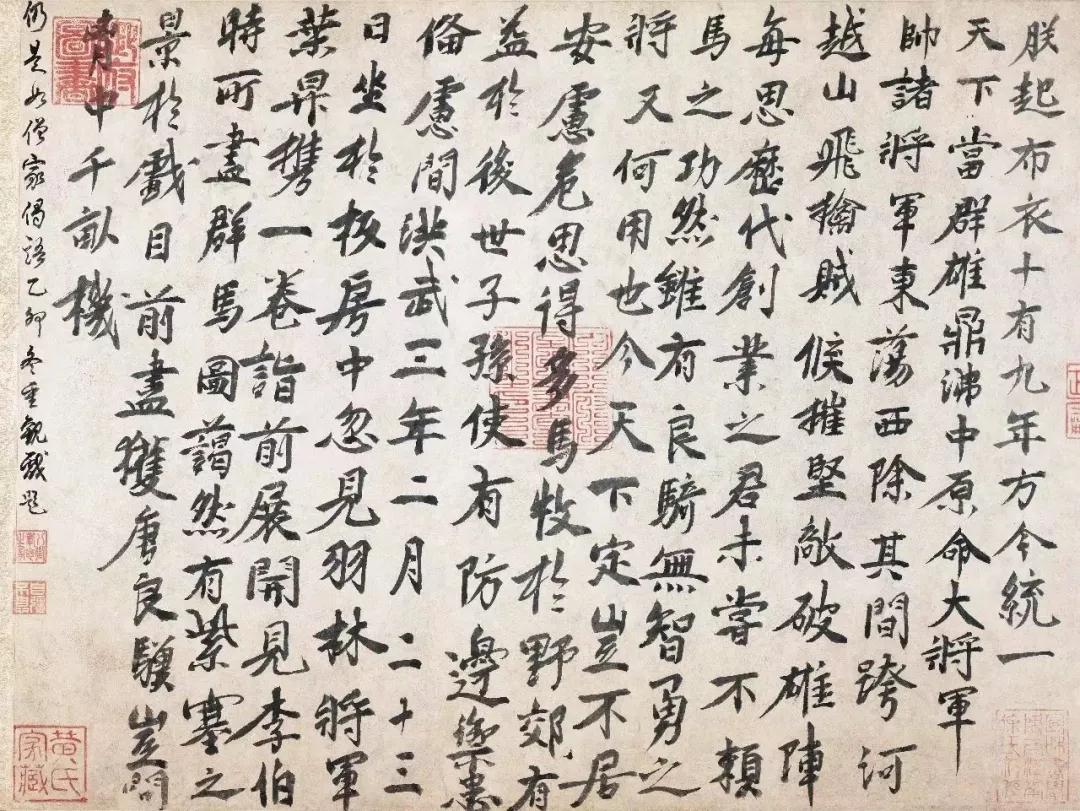 朕起布衣十有九年方今統一
天下當群雄鼎沸中原命大將軍
帥諸將軍東蕩西除其間跨河
越山飛擒賊候摧堅敵破雄陣
每思歷代創業之君未嘗不賴
馬之功然雖有良騎無智勇之
將又何用也今天下定豈不居
安慮危思得多馬牧於野郊有
益於後世子孫使有防邊禦患
俻慮間洪武三年二月二十三
日坐於板房中忽見羽林將軍
葉昇携一卷詣前展開見李伯
時所畫群馬圖藹然有紫塞之
景於戲目前盡獲唐良驥豈問
胷中千畝機
仍是如僧家偈語乙卯冬重觀戲題
黃氏
家藏